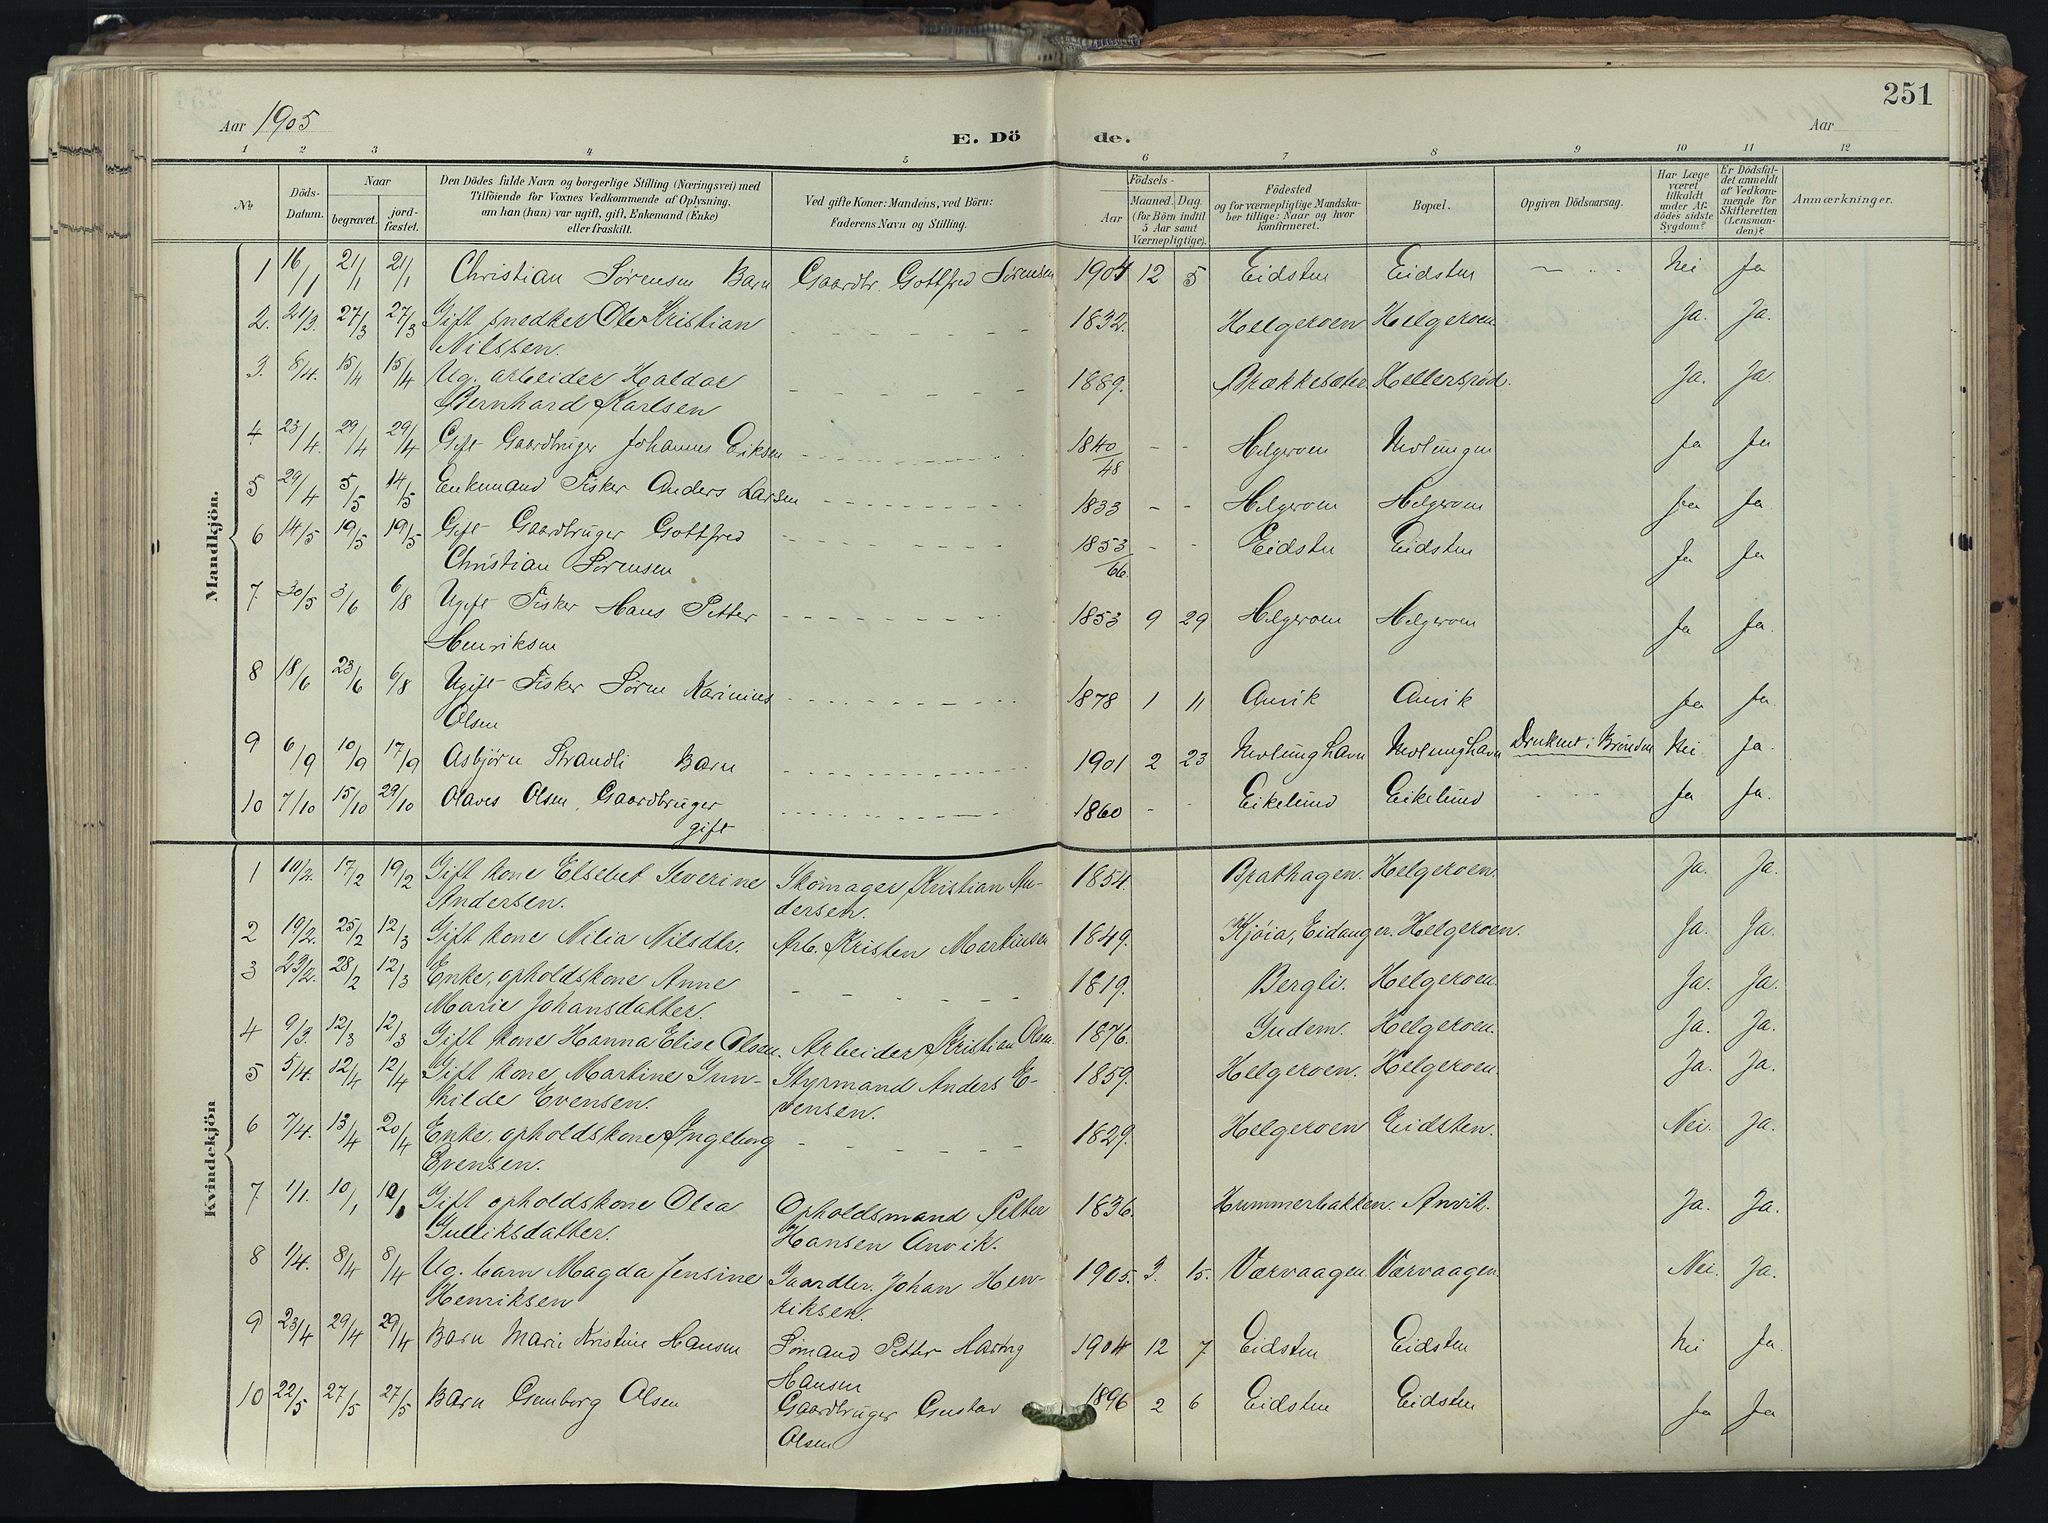 251
Aar 1905 E. Dö de. Aar
1 2 3 4 5 6 7 8 9 10 11 12
№ Döds-Datum. Naar begravet. jordfæstet. Den Dödes fulde Navn og borgerlige Stilling (Næringsvei) med Tilföiende for Voxnes Vedkommende af Oplysning, om han (hun) var ugift, gift, Enkemand (Enke) eller fraskilt. Ved gifte Koner: Mandens, ved Börn: Faderens Navn og Stilling. Födsels- Aar Maaned. Dag. (for Börn indtil 5 Aar samt Værnepligtige). Födested og for værnepligtige Mandskaber tillige: Naar og hvor konfirmeret. Bopæl. Opgiven Dödsaarsag. Har Læge været tilkaldt under Afdödes sidste Sygdom? Er Dödsfaldet anmeldt af Vedkommende for Skifteretten (Lensmanden)? Anmærkninger.
Mandkjön.
1 16/1 21/1 21/1 Christian Sørensen Barn Gaardbr. Gottfred Sørensen 1904 12 5 Eidsten Eidsten Nei Ja
2. 21/3. 27/3 27/3 Gift snedker Ole Kristian 1832. Helgeroen Helgeroen Ja. Ja.
Nilssen.
3. 8/4. 15/4 15/4 Ug. arbeider Haldor 1889. Brækkesæter Hellersrød. Ja. Ja.
Bernhard Karlsen
4 23/4. 29/4 29/4 Gift Gaardbruger Johannes Eriksen 1840/48 - - Helgeroen Nevlungen Ja Ja
5 29/4 5/5 14/5 Enkemand Fisker Anders Larsen 1833 - - Helgeroen Helgeroen Ja Ja
6 14/5 19/5 19/5 Gift Gaardbruger Gottfred 1853/66. - - Eidsten Eidsten Ja Ja
Christian Sørensen
7 30/5 3/6 6/8 Ugift Fisker Hans Petter 1853 9 29 Helgeroen Helgeroen Ja Ja.
Henriksen
8 18/6 23/6 6/8 Ugift Fisker Søren Karinius 1878 1 11 Anvik Anvik Ja Ja.
Olsen
9 6/9 10/9 17/9 Asbjørn Strandli Barn 1901 2 23 Nevlunghavn Nevlunghavn Druknet i Brønden Nei Ja.
10 7/10 15/10 29/10 Olaves Olsen, Gaardbruger 1860 - - Eikelund Eikelund Ja Ja.
gift
Kvindekjön
1 10/2. 17/2 19/2 Gift kone Elsebet Severine Skomager Kristian An- 1854. Brathagen. Helgeroen. Ja. Ja.
Andersen. dersen.
2 19/2. 25/2 12/3 Gift kone Nilia Nilsdtr. Arb. Kristen Martinsen 1849. Kjøia, Eidanger. Helgeroen. Ja. Ja.
3 23/2. 28/2 12/3 Enke, opholdskone Anne 1819. Bergli. Helgeroen. Ja. Ja.
Marie Johansdatter.
4 9/3. 12/3 12/3 Gift kone Hanna Elise Olsen. Arbeider Kristian Olsen. 1876. Gudem. Helgeroen. Ja. Ja.
5 5/4. 12/4 12/4 Gift kone Martine Gun- Styrmand Anders E- 1859. Helgeroen. Helgeroen. Ja. Ja.
hilde Evensen. vensen.
6 7/4. 13/4 20/4 Enke, opholdskone Ingeborg 1829. Helgeroen Eidsten. Nei. Ja.
Evensen.
7 1/1. 10/1 10/1 Gift opholdskone Olea Opholdsmand Petter 1836. Hummerbakken. Anvik. Ja. Ja.
Gulliksdatter. Hansen Anvik.
8 1/4. 8/4 8/4 Ug. barn Magda Jensine Gaardbr. Johan Hen- 1905. 3. 15. Værvaagen Værvaagen. Nei. Ja.
Henriksen riksen.
9 23/4 29/4 29/4 Barn Marie Kristine Hansen Sømand Petter Hartvig 1904 12 7 Eidsten Eidsten Nei Ja.
Hansen
10 22/5 27/5 27/5 Barn Gemborg Olsen Gaardbruger Gustav 1896 2 6 Eidsten Eidsten Ja Ja
Olsen